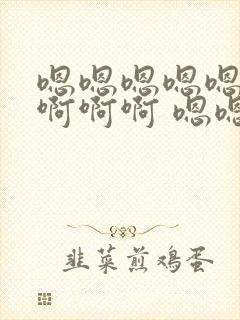 嗯嗯嗯嗯嗯
啊啊啊 嗯嗯
韭菜煎鸡蛋